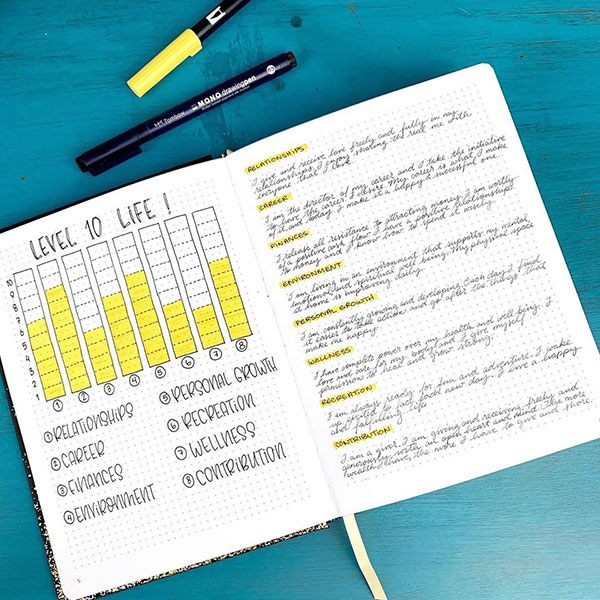 LEVEL 10 LIFE!
10
9
8
7
6
5
4
3
2
1
1 2 3 4 5 6 7 8
1 RELATIONSHIPS
2 CAREER
3 FINANCES
4 ENVIRONMENT
5 PERSONAL GROWTH
6 RECREATION
7 WELLNESS
8 CONTRIBUTION
5
Tombow MONO drawing pen
RELATIONSHIPS
I give and receive love freely and fully in my
relationships. I enjoy sharing the real me with
everyone that I love.
CAREER
I am the director of my career and I take the initiative
to have the career I desire. My career is what I make
of it and today I make it a happy & successful one.
FINANCES
I release all resistance to attracting money. I am worthy
of a positive cash flow. I have a positive relationship
to money and I know how to spend it wisely.
ENVIRONMENT
I am living in an environment that supports my mental,
emotional, and spiritual well being. My physical space
at home is improving daily.
PERSONAL GROWTH
I am constantly growing and developing. Each day I find
it easier to take action and go after the things that
make me happy.
WELLNESS
I have complete power over my health and well being. I
love and care for my body and I give myself
permission to heal and grow strong.
RECREATION
I am always ready for fun and adventure. I wake
up excited to face each new day. I live a happy
and fulfilling life
CONTRIBUTION
I am a giver. I am giving and receiving freely and
generously with an open heart and mind. The more
wealth I have, the more I have to give and share.